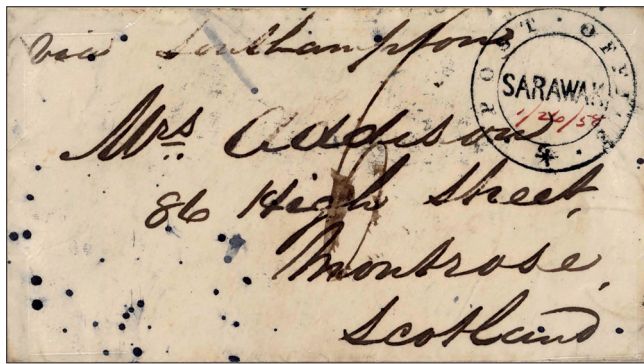 via Southampton
POST · OFFICE
SARAWAK
1/26/58
Mrs Addison
86 High Street,
Montrose,
Scotland